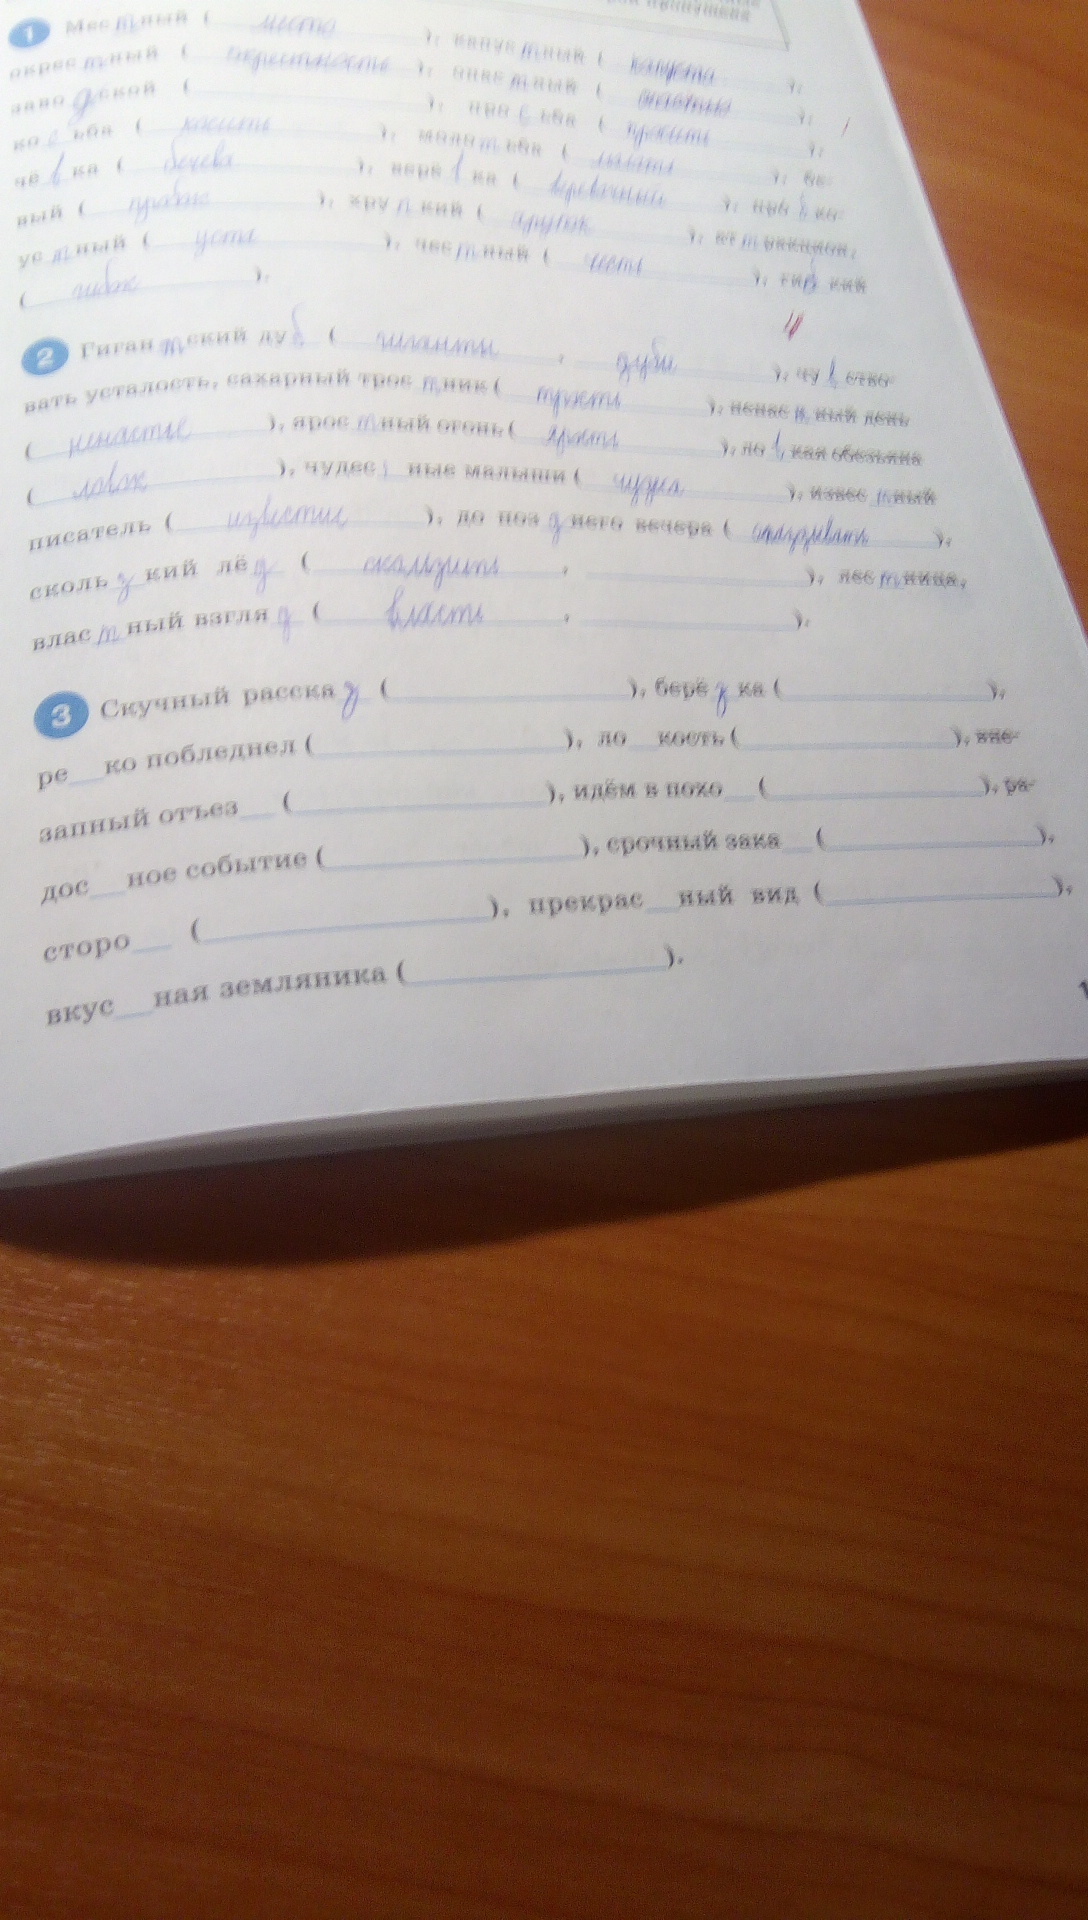 пропущен
1 Местный ( место ), капустный ( капуста ),
окрестный ( окрестность ), счастный (
заводской ( ), просьба ( просить ),
косьба ( косить ), молотьба ( ), бе-
чёвка ( бечева ), верёвка ( верёвочный ), проб ко-
вый ( пробок ), хрупкий ( хрупок ), ат т ракцион,
устный ( уста ), честный ( честь ), гибкий
( гибок ).
2 Гигантский дуб ( гиганты , дубы ), чувство-
вать усталость, сахарный тростник ( трость ), ненас н ный день
( ненастье ), яростный огонь ( ярость ), ловкая обезьяна
( ловок ), чудес ные малыши ( чудеса ), известный
писатель ( известие ), до позднего вечера ( опаздывать ),
скользкий лёд ( скользить , ), лестница,
властный взгляд ( власть , ).
3 Скучный рассказ ( ), берёзка ( ),
ре__ко побледнел ( ), ло__кость ( ), вне-
запный отъез__ ( ), идём в похо__ ( ), ра-
дос__ное событие ( ), срочный зака__ ( ),
сторо__ ( ), прекрас__ный вид ( ),
вкус__ная земляника ( ).
1